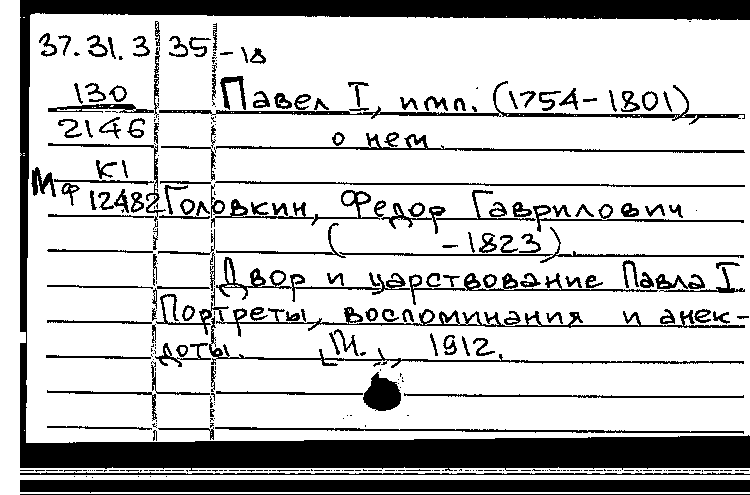 37.31.3 35-18
130
2146
Павел I, имп. (1754-1801),
о нем.
МФ К1
12482
Головкин, Федор Гаврилович
( -1823).
Двор и царствование Павла I
Портреты, воспоминания и анек-
доты. [М.], 1912.